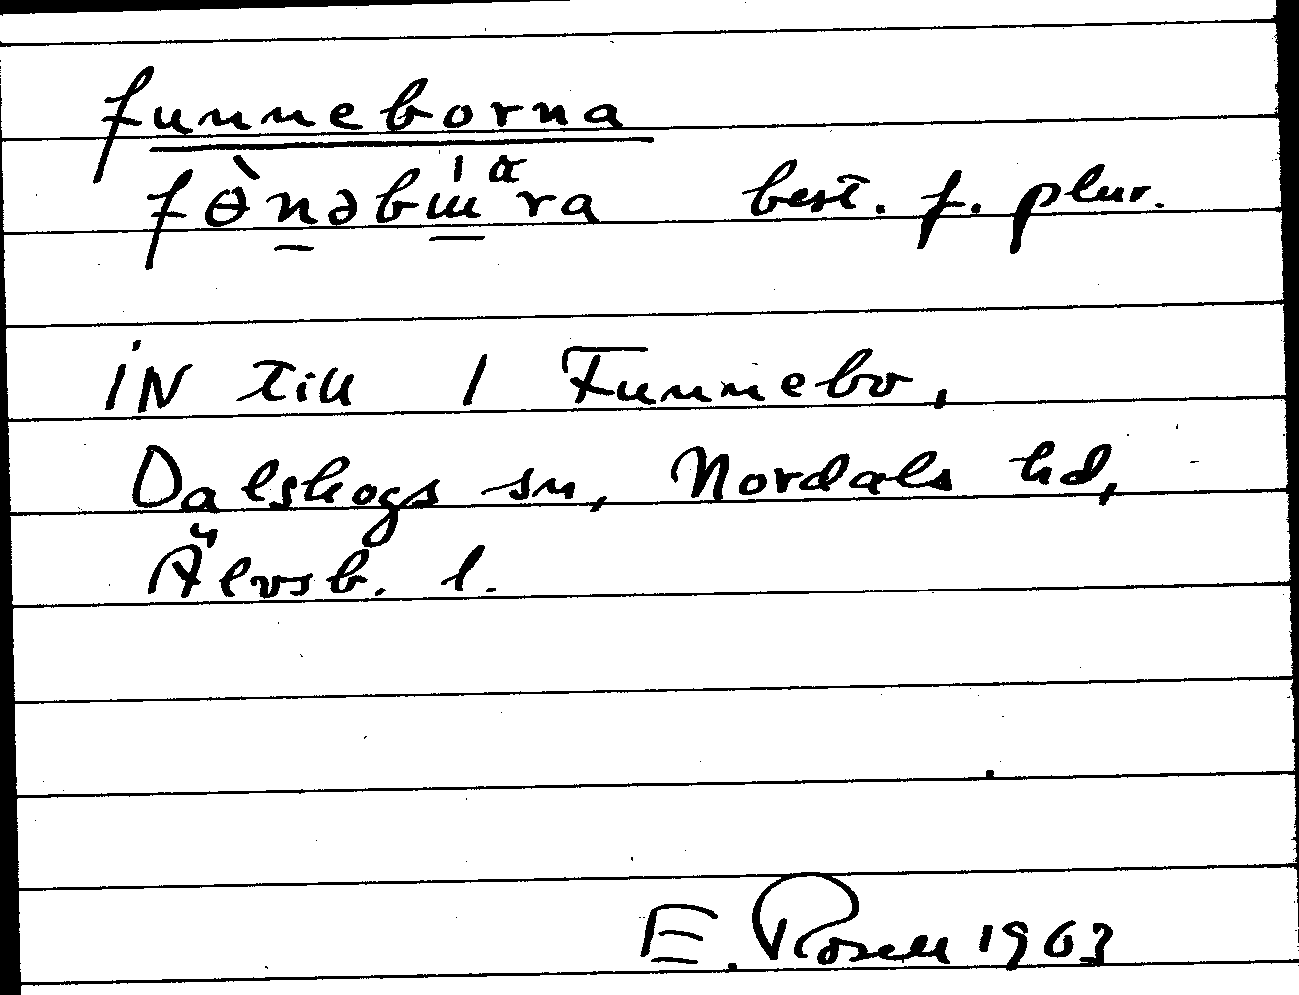 funneborna
fɵ̀nəbɯ́ᵅra best. f. plur.
iN till 1 Funnebo,
Dalskogs sn, Nordals hd,
Älvsb. l.
E. Rosell 1963